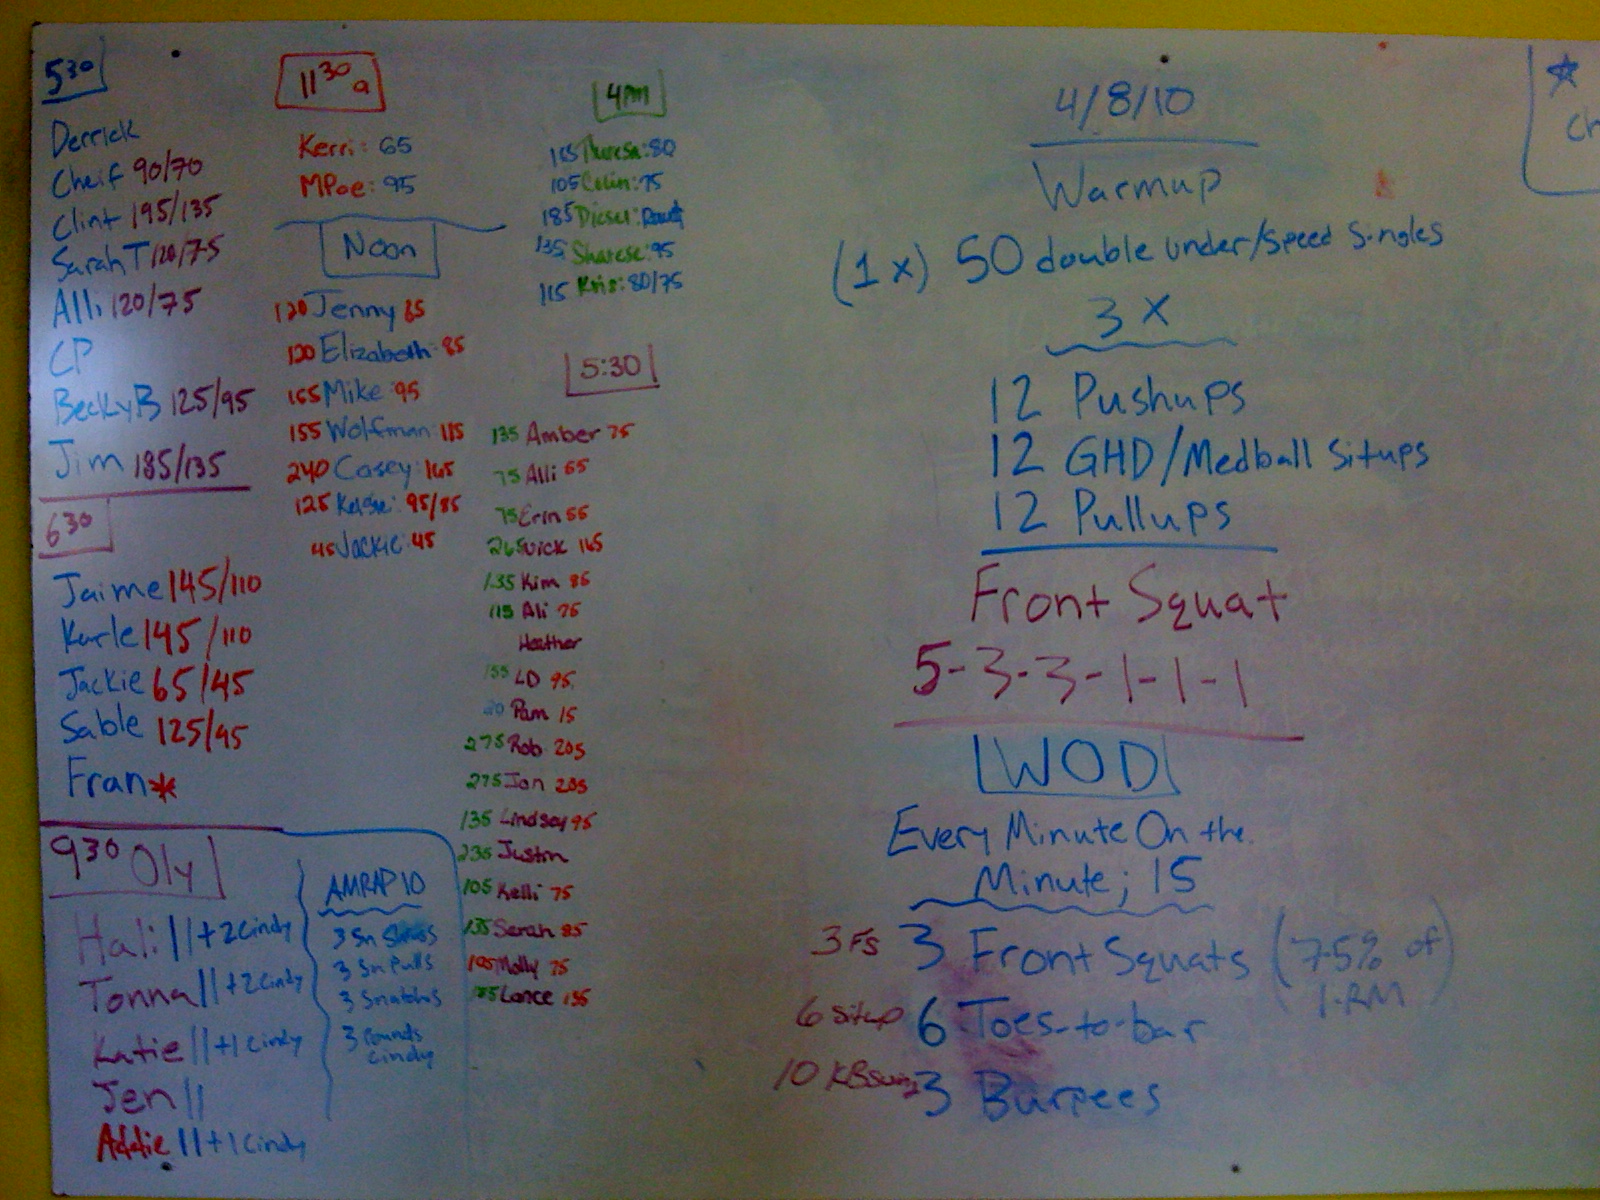 5 30
Derrick
Cheif 90/70
Clint 195/135
Sarah T 120/75
Alli 120/75
CP
Becky B 125/95
Jim 185/135
6 30
Jaime 145/110
Karle 145/110
Jackie 65/45
Sable 125/95
Fran*
9 30 Oly
Hali || +2 Cindy
Tonna || +2 Cindy
Katie || +1 Cindy
Jen ||
Addie || +1 Cindy
AMRAP 10
3 Sn
3 Sn Pulls
3 Snatches
3 rounds
Cindy
11 30 a
Kerri: 65
MPoe: 95
Noon
120 Jenny 85
120 Elizabeth: 85
155 Mike: 95
155 Wolfman: 115
240 Casey: 165
125 Kelsie: 95/85
45 Jackie: 45
4pm
115 Theresa: 80
105 Colin: 75
185 Diesel:
135 Sharese: 95
115 Kris: 80/75
5:30
135 Amber 75
75 Alli 55
75 Erin 55
265 Vick 165
135 Kim 85
115 Ali 75
Heather
155 LD 95
20 Pam 15
275 Rob 205
275 Jon 205
135 Lindsay 95
235 Justin
105 Kelli 75
135 Sarah 85
105 Molly 75
185 Lance 135
4/8/10
Warmup
(1x) 50 double under/speed singles
3 X
12 Pushups
12 GHD/Medball Situps
12 Pullups
Front Squat
5-3-3-1-1-1
WOD
Every Minute On the
Minute; 15
3 FS 3 Front Squats (75% of
1-RM)
6 Situp 6 Toes-to-bar
10 KBSwing 3 Burpees
Ch